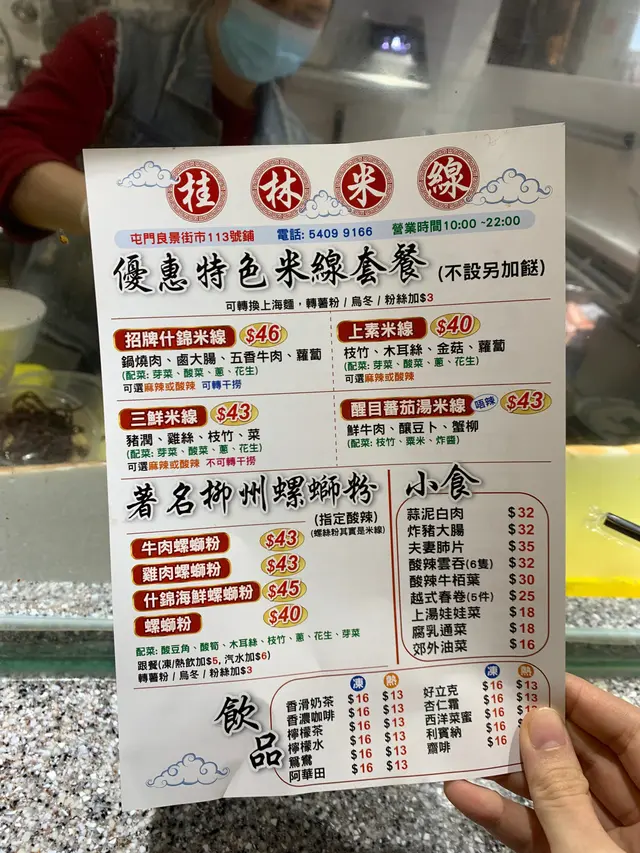 桂林米線
屯門良景街市113號鋪 電話: 5409 9166 營業時間10:00 ~22:00
優惠特色米線套餐 (不設另加餸)
可轉換上海麵，轉薯粉 / 烏冬 / 粉絲加$3
招牌什錦米線 $46
鍋燒肉、鹵大腸、五香牛肉、蘿蔔
(配菜: 芽菜、酸菜、蔥、花生)
可選麻辣或酸辣 可轉干撈
上素米線 $40
枝竹、木耳絲、金菇、蘿蔔
(配菜: 芽菜、酸菜、蔥、花生)
可選麻辣或酸辣
三鮮米線 $43
豬潤、雞絲、枝竹、菜
(配菜: 芽菜、酸菜、蔥、花生)
可選麻辣或酸辣 不可轉干撈
醒目蕃茄湯米線 唔辣 $43
鮮牛肉、釀豆卜、蟹柳
(配菜: 枝竹、粟米、炸醬)
著名柳州螺螄粉 (指定酸辣)
(螺絲粉其實是米線)
牛肉螺螄粉 $43
雞肉螺螄粉 $43
什錦海鮮螺螄粉 $45
螺螄粉 $40
配菜: 酸豆角、酸筍、木耳絲、枝竹、蔥、花生、芽菜
跟餐(凍/熱飲加$5, 汽水加$6)
轉薯粉 / 烏冬 / 粉絲加$3
小食
蒜泥白肉 $32
炸豬大腸 $32
夫妻肺片 $35
酸辣雲吞(6隻) $32
酸辣牛栢葉 $30
越式春卷(5件) $25
上湯娃娃菜 $18
腐乳通菜 $18
郊外油菜 $16
飲品
凍 熱
香滑奶茶 $16 $13
香濃咖啡 $16 $13
檸檬茶 $16 $13
檸檬水 $16 $13
鴛鴦 $16 $13
阿華田 $16 $13
凍 熱
好立克 $16 $13
杏仁霜 $16 $13
西洋菜蜜 $16
利賓納 $16
齋啡 $16